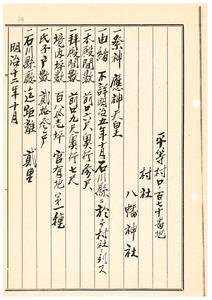 平等村口百七十番地
村社
八幡神社
一祭神 應神天皇
一由緒 不詳明治五年十月石川縣ニ於テ村社ニ列ス
一本殿間数 前口六尺奥行
一拝殿間数 前口九尺奥行七尺
一境内坪数 官有地第一種
一氏子戸数
一石川縣廳迄距離 貳里
明治十二年十月